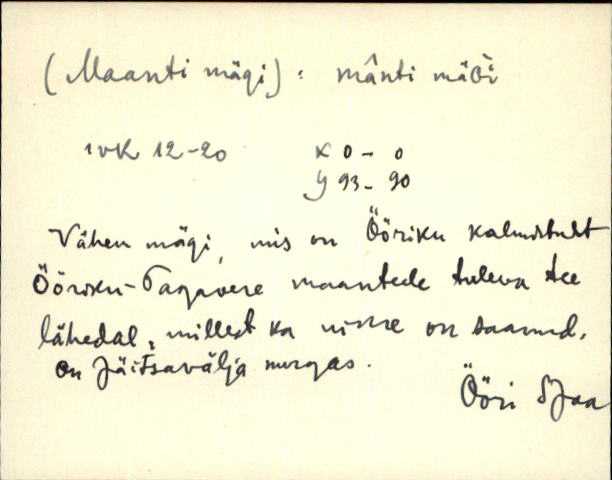 (Maanti mägi): mânti mäǵi
ıvK 12-20 X 0 - 0
y 93 - 90
Vähem mägi, mis on Ööriku kalmistult
Ööriku-Tagavere maantede tuleva tee
lähedal, millest ka nime on saanud.
On Jäitsavälja nurgas.
Ööri SJaa